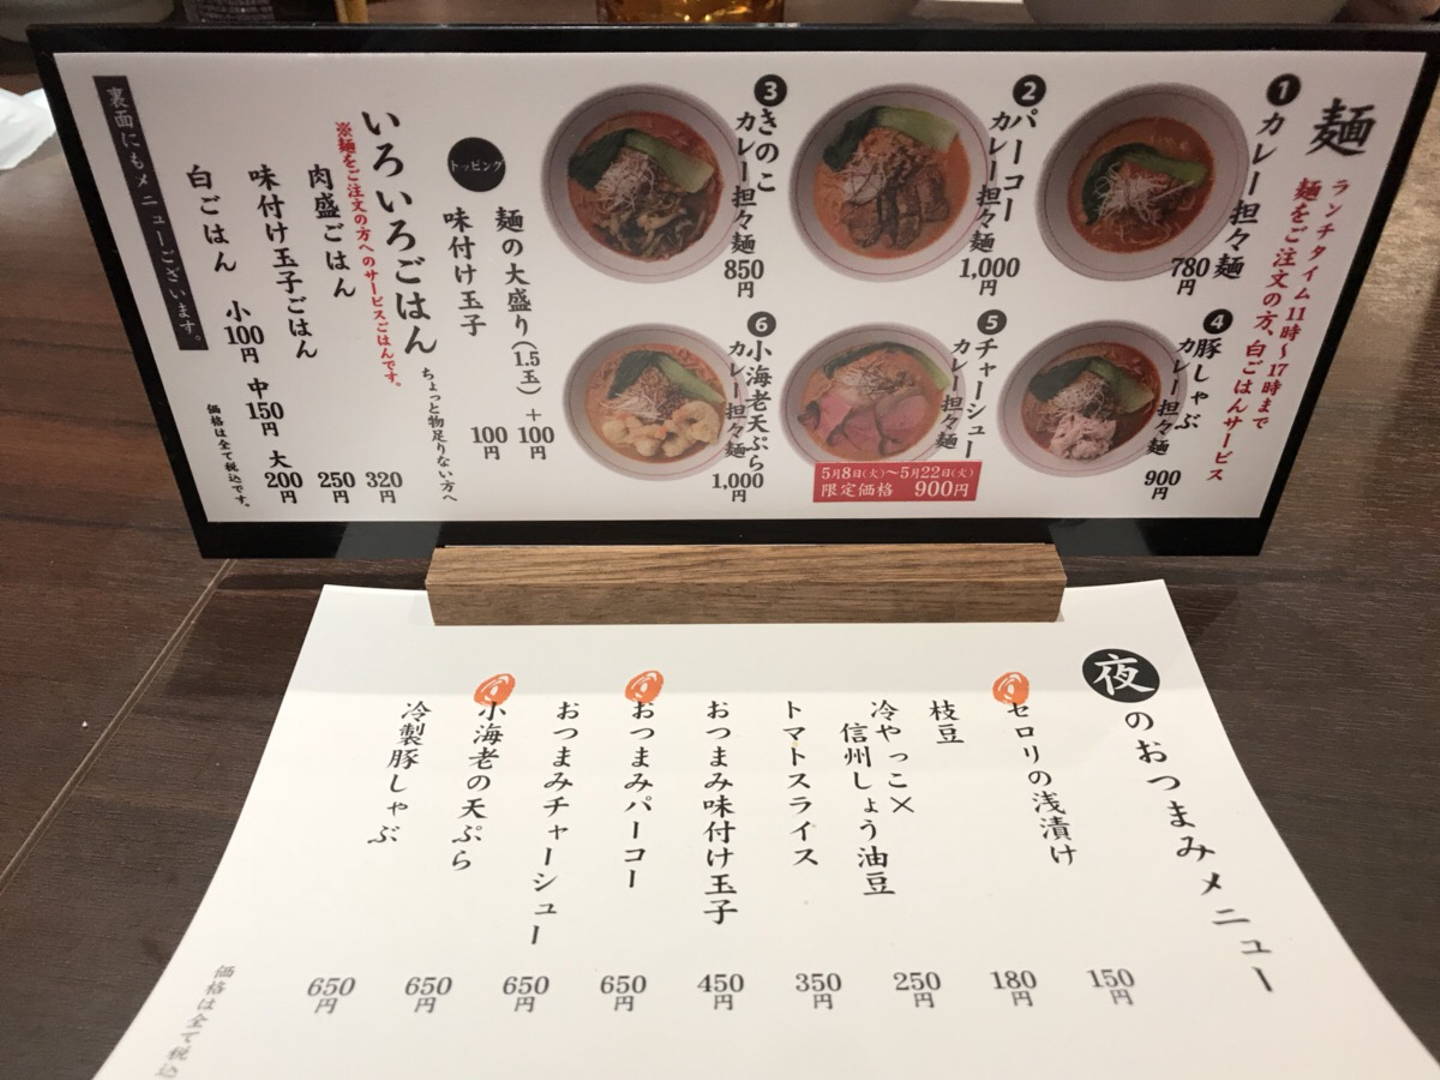 麺
ランチタイム11時〜17時まで
麺をご注文の方、白ごはんサービス
1
カレー担々麺
780円
2
パーコー
カレー担々麺
1,000円
3
きのこ
カレー担々麺
850円
4
豚しゃぶ
カレー担々麺
900円
5
チャーシュー
カレー担々麺
5月8日(火)〜5月22日(火)
限定価格 900円
6
小海老天ぷら
カレー担々麺
1,000円
トッピング
麺の大盛り(1.5玉) +100円
味付け玉子 100円
いろいろごはん ちょっと物足りない方へ
※麺をご注文の方へのサービスごはんです。
肉盛ごはん 320円
味付け玉子ごはん 250円
白ごはん 小100円 中150円 大200円
価格は全て税込です。
裏面にもメニューございます。
夜のおつまみメニュー
セロリの浅漬け 150円
枝豆 180円
冷やっこ×
信州しょう油豆 250円
トマトスライス 350円
おつまみ味付け玉子 450円
おつまみパーコー 650円
おつまみチャーシュー 650円
小海老の天ぷら 650円
冷製豚しゃぶ 650円
価格は全て税込